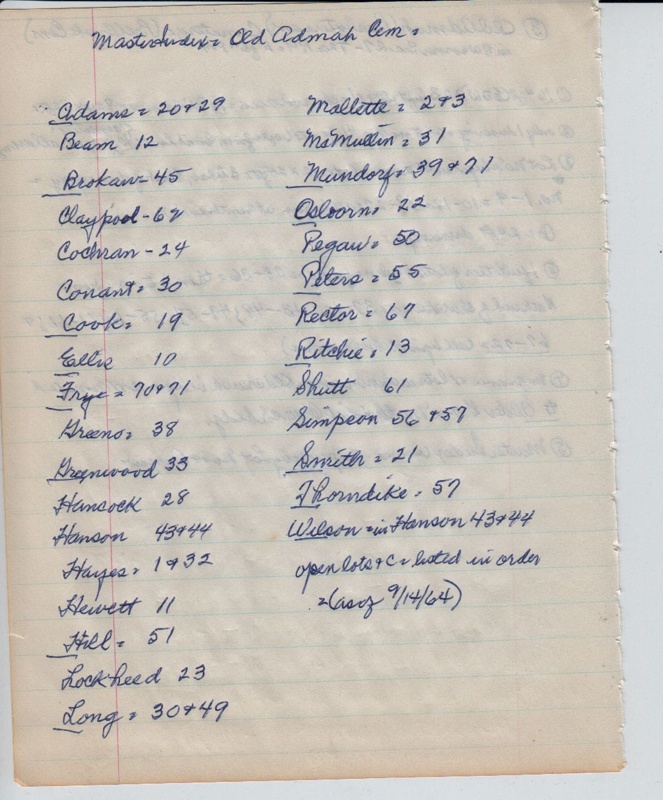 Master Index = Old Admah Cem =
Adams = 20 & 29
Beam 12
Brokaw - 45
Claypool - 62
Cochran - 24
Conant = 30
Cook = 19
Ellis 10
Frye = 70 & 71
Greeno = 38
Greenwood 33
Hancock 28
Hanson 43 & 44
Hayes = 1 & 32
Hewett 11
Hill = 51
Lockheed 23
Long = 30 & 49
Mallette = 2 & 3
McMullin = 31
Mundorf = 39 & 71
Osborn = 22
Pegau = 50
Peters = 55
Rector = 67
Ritchie = 13
Shutt 61
Simpson 56 & 57
Smith = 21
Thorndike = 57
Wilson = in Hanson 43 & 44
open lots & c = listed in order
= (as of 9/14/64)